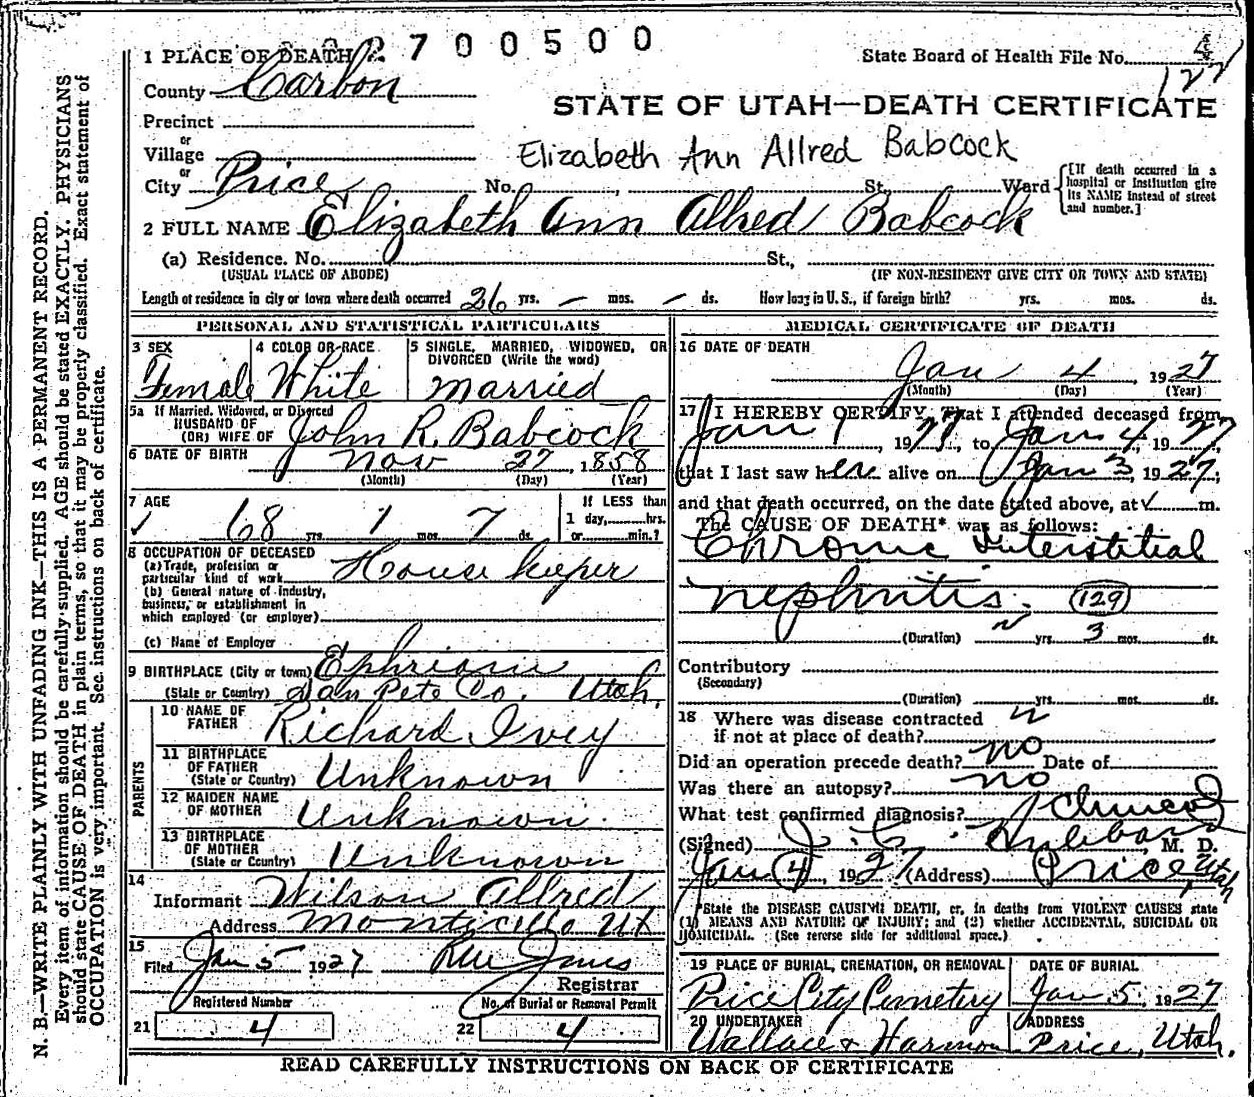 2700500
1 PLACE OF DEATH
State Board of Health File No. 4
127
County Carbon
STATE OF UTAH—DEATH CERTIFICATE
Precinct
or
Village
Elizabeth Ann Allred Babcock
or
City Price No. , St. Ward
[If death occurred in a hospital or institution give its NAME instead of street and number.]
2 FULL NAME Elizabeth Ann Allred Babcock
(a) Residence. No. St.,
(USUAL PLACE OF ABODE) (IF NON-RESIDENT GIVE CITY OR TOWN AND STATE)
Length of residence in city or town where death occurred 26 yrs. — mos. — ds. How long in U. S., if foreign birth? yrs. mos. ds.
PERSONAL AND STATISTICAL PARTICULARS
3 SEX Female
4 COLOR OR RACE White
5 SINGLE, MARRIED, WIDOWED, OR DIVORCED (Write the word)
Married
5a If Married, Widowed, or Divorced
HUSBAND OF
(OR) WIFE OF John R. Babcock
6 DATE OF BIRTH Nov 27, 1858
(Month) (Day) (Year)
7 AGE
68 yrs. 1 mos. 7 ds.
If LESS than
1 day, hrs.
or min.?
8 OCCUPATION OF DECEASED
(a) Trade, profession or
particular kind of work House keeper
(b) General nature of industry,
business, or establishment in
which employed (or employer)
(c) Name of Employer
9 BIRTHPLACE (City or town) Ephriam
(State or Country) San Pete Co. Utah.
PARENTS
10 NAME OF
FATHER Richard Ivey
11 BIRTHPLACE
OF FATHER
(State or Country) Unknown
12 MAIDEN NAME
OF MOTHER Unknown.
13 BIRTHPLACE
OF MOTHER
(State or Country) Unknown
14
Informant Wilson Allred
Address Monticello Ut
15
Filed Jan 5 1927
Registrar
Registered Number No. of Burial or Removal Permit
21 4 22 4
MEDICAL CERTIFICATE OF DEATH
16 DATE OF DEATH
Jan 4, 1927
(Month) (Day) (Year)
17 I HEREBY CERTIFY, That I attended deceased from
Jan 1, 1927, to Jan 4 1927
that I last saw her alive on Jan 3, 1927,
and that death occurred, on the date stated above, at m.
The CAUSE OF DEATH* was as follows:
Chronic Interstitial
nephritis. 129
(Duration) yrs. 3 mos. ds.
Contributory
(Secondary)
(Duration) yrs. mos. ds.
18 Where was disease contracted
if not at place of death?
Did an operation precede death? no Date of
Was there an autopsy? no
What test confirmed diagnosis? Clinical
(Signed) J. C. Hubbard M. D.
Jan 4, 1927 (Address) Price, Utah
*State the DISEASE CAUSING DEATH, or, in deaths from VIOLENT CAUSES state
(1) MEANS AND NATURE OF INJURY; and (2) whether ACCIDENTAL, SUICIDAL OR
HOMICIDAL. (See reverse side for additional space.)
19 PLACE OF BURIAL, CREMATION, OR REMOVAL
Price City Cemetery
DATE OF BURIAL
Jan 5, 1927
20 UNDERTAKER
Wallace & Harmon
ADDRESS
Price, Utah.
READ CAREFULLY INSTRUCTIONS ON BACK OF CERTIFICATE
N. B.—WRITE PLAINLY WITH UNFADING INK—THIS IS A PERMANENT RECORD.
Every item of information should be carefully supplied. AGE should be stated EXACTLY. PHYSICIANS
should state CAUSE OF DEATH in plain terms, so that it may be properly classified. Exact statement of
OCCUPATION is very important. See instructions on back of certificate.